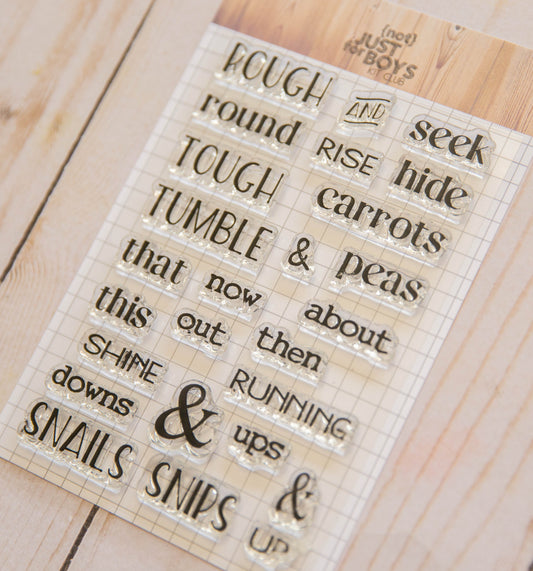 {not}
JUST
for BOYS
KIT CLUB
ROUGH AND seek
round RISE hide
TOUGH carrots
TUMBLE & peas
that now about
this out then
SHINE RUNNING
downs & ups
SNAILS SNIPS &
UP